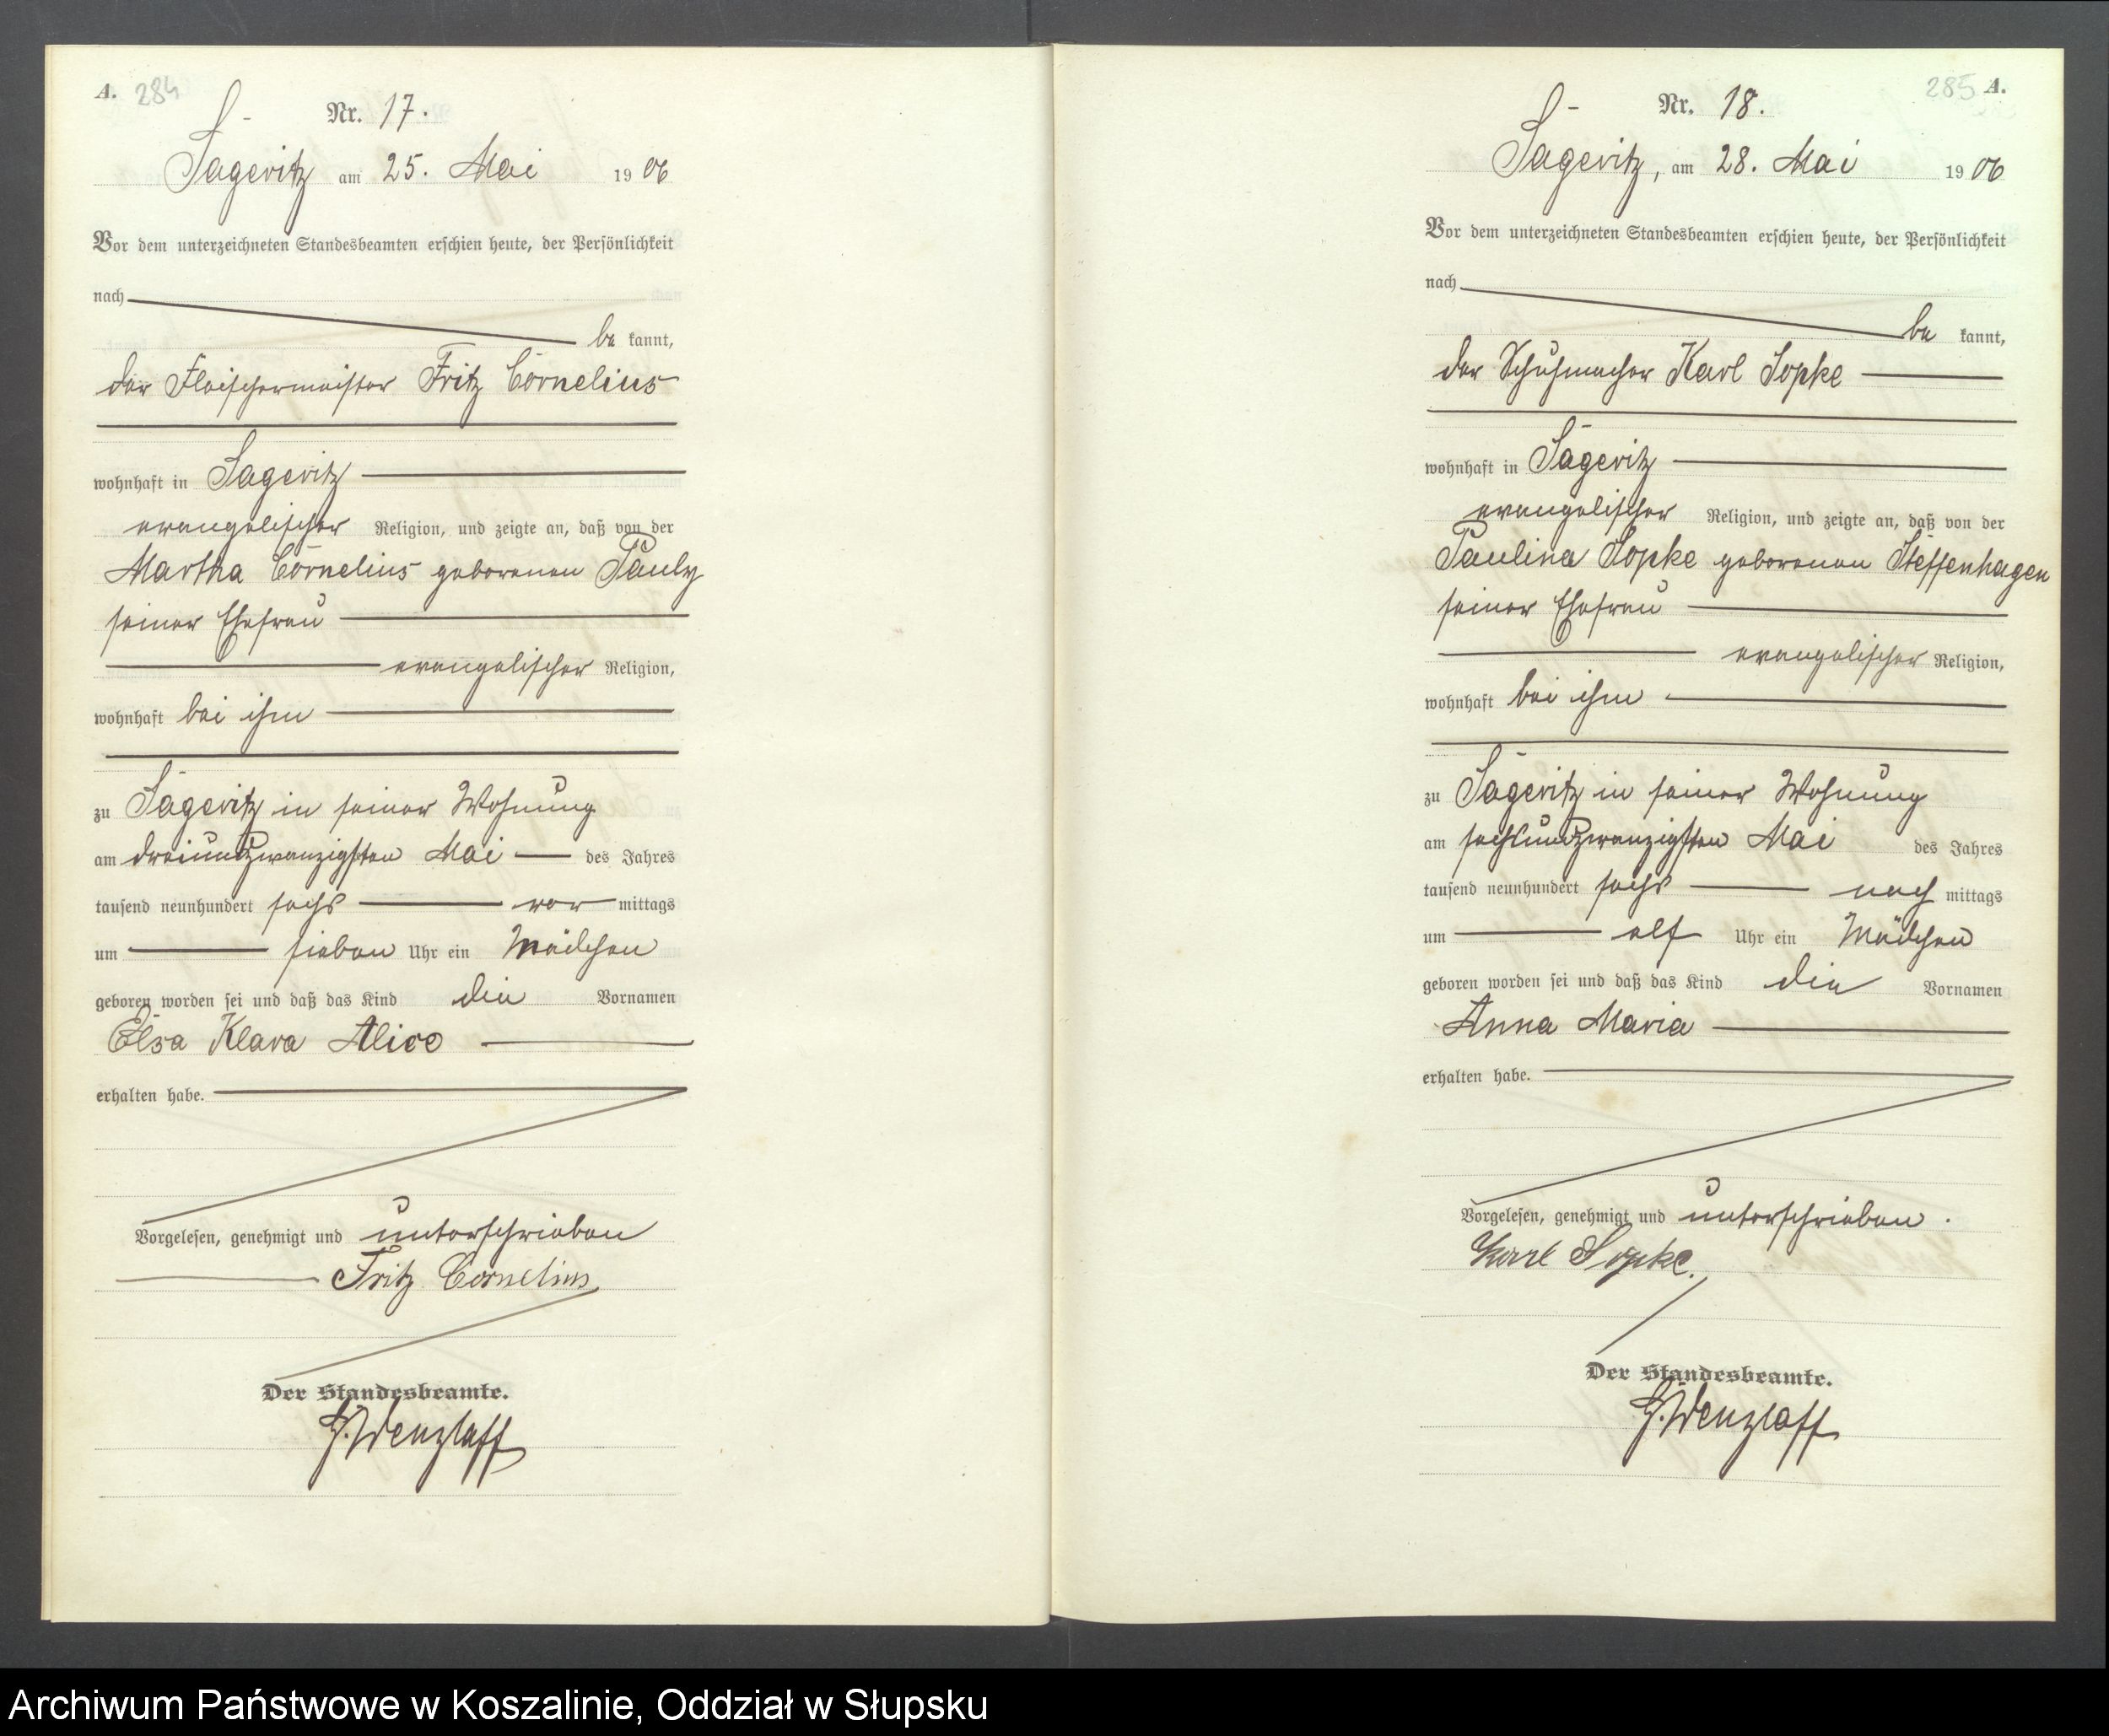 A. 284
Nr. 17.
Sageritz am 25. Mai 1906
Vor dem unterzeichneten Standesbeamten erschien heute, der Persönlichkeit
nach
be kannt,
der Fleischermeister Fritz Cornelius
wohnhaft in Sageritz
evangelischer Religion, und zeigte an, daß von der
Martha Cornelius geborenen Pauly
seiner Ehefrau
evangelischer Religion,
wohnhaft bei ihm
zu Sageritz in seiner Wohnung
am dreiundzwanzigsten Mai des Jahres
tausend neunhundert sechs vor mittags
um sieben Uhr ein Mädchen
geboren worden sei und daß das Kind die Vornamen
Elsa Klara Alice
erhalten habe.
Vorgelesen, genehmigt und unterschrieben
Fritz Cornelius
Der Standesbeamte.
G. Wenzlaff
285 A.
Nr. 18.
Sageritz, am 28. Mai 1906
Vor dem unterzeichneten Standesbeamten erschien heute, der Persönlichkeit
nach
be kannt,
der Schuhmacher Karl Sopke
wohnhaft in Sageritz
evangelischer Religion, und zeigte an, daß von der
Paulina Sopke geborenen Steffenhagen
seiner Ehefrau
evangelischer Religion,
wohnhaft bei ihm
zu Sageritz in seiner Wohnung
am sechsundzwanzigsten Mai des Jahres
tausend neunhundert sechs nach mittags
um elf Uhr ein Mädchen
geboren worden sei und daß das Kind die Vornamen
Anna Maria
erhalten habe.
Vorgelesen, genehmigt und unterschrieben.
Karl Sopke.
Der Standesbeamte.
G. Wenzlaff
Archiwum Państwowe w Koszalinie, Oddział w Słupsku